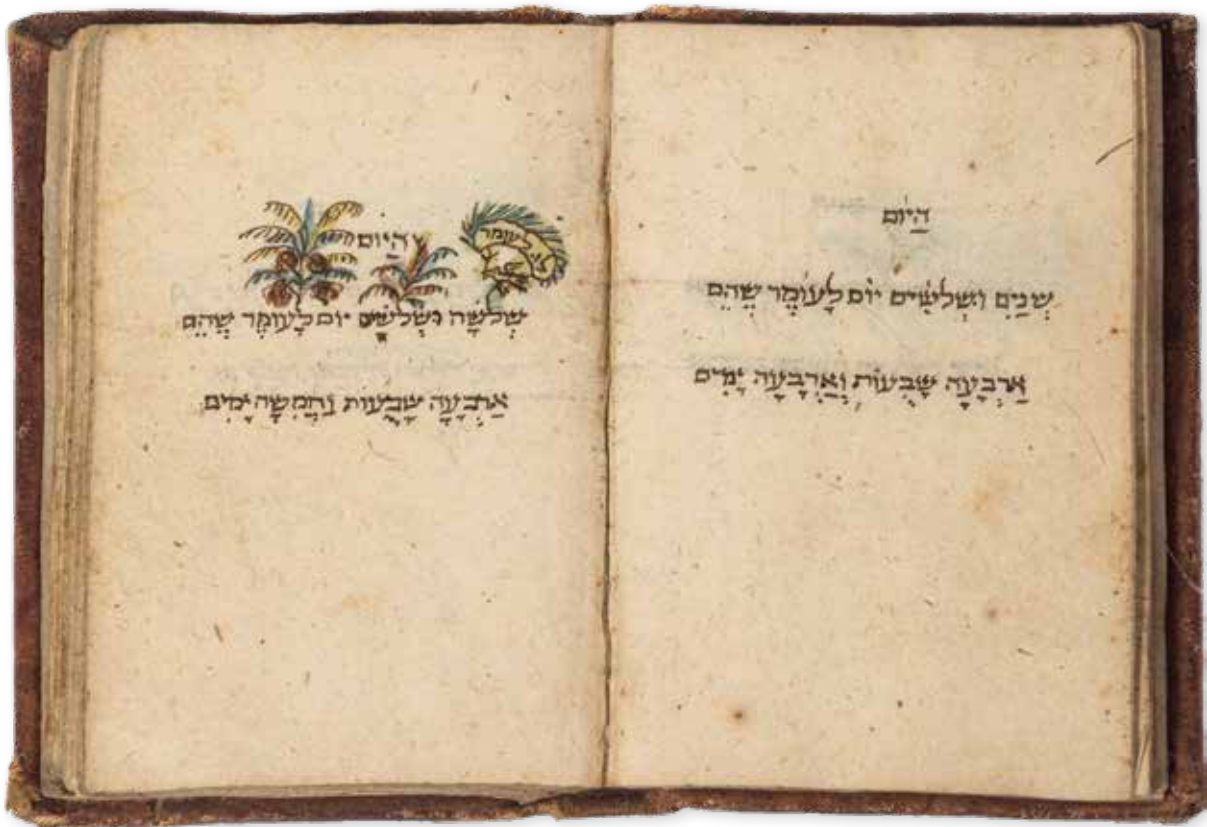 הַיוֹם
שְנַיִם וּשְלשִים יוֹם לָעוֹמֶר שֶהֵם
אַרְבָּעָה שָבֻעוֹת וְאַרְבָּעָה יָמִים
לעומר
הַיוֹם
שְלשָה וּשְלשִים יוֹם לָעוֹמֶר שֶהֵם
אַרְבָּעָה שָבֻעוֹת וַחֲמִשָה יָמִים